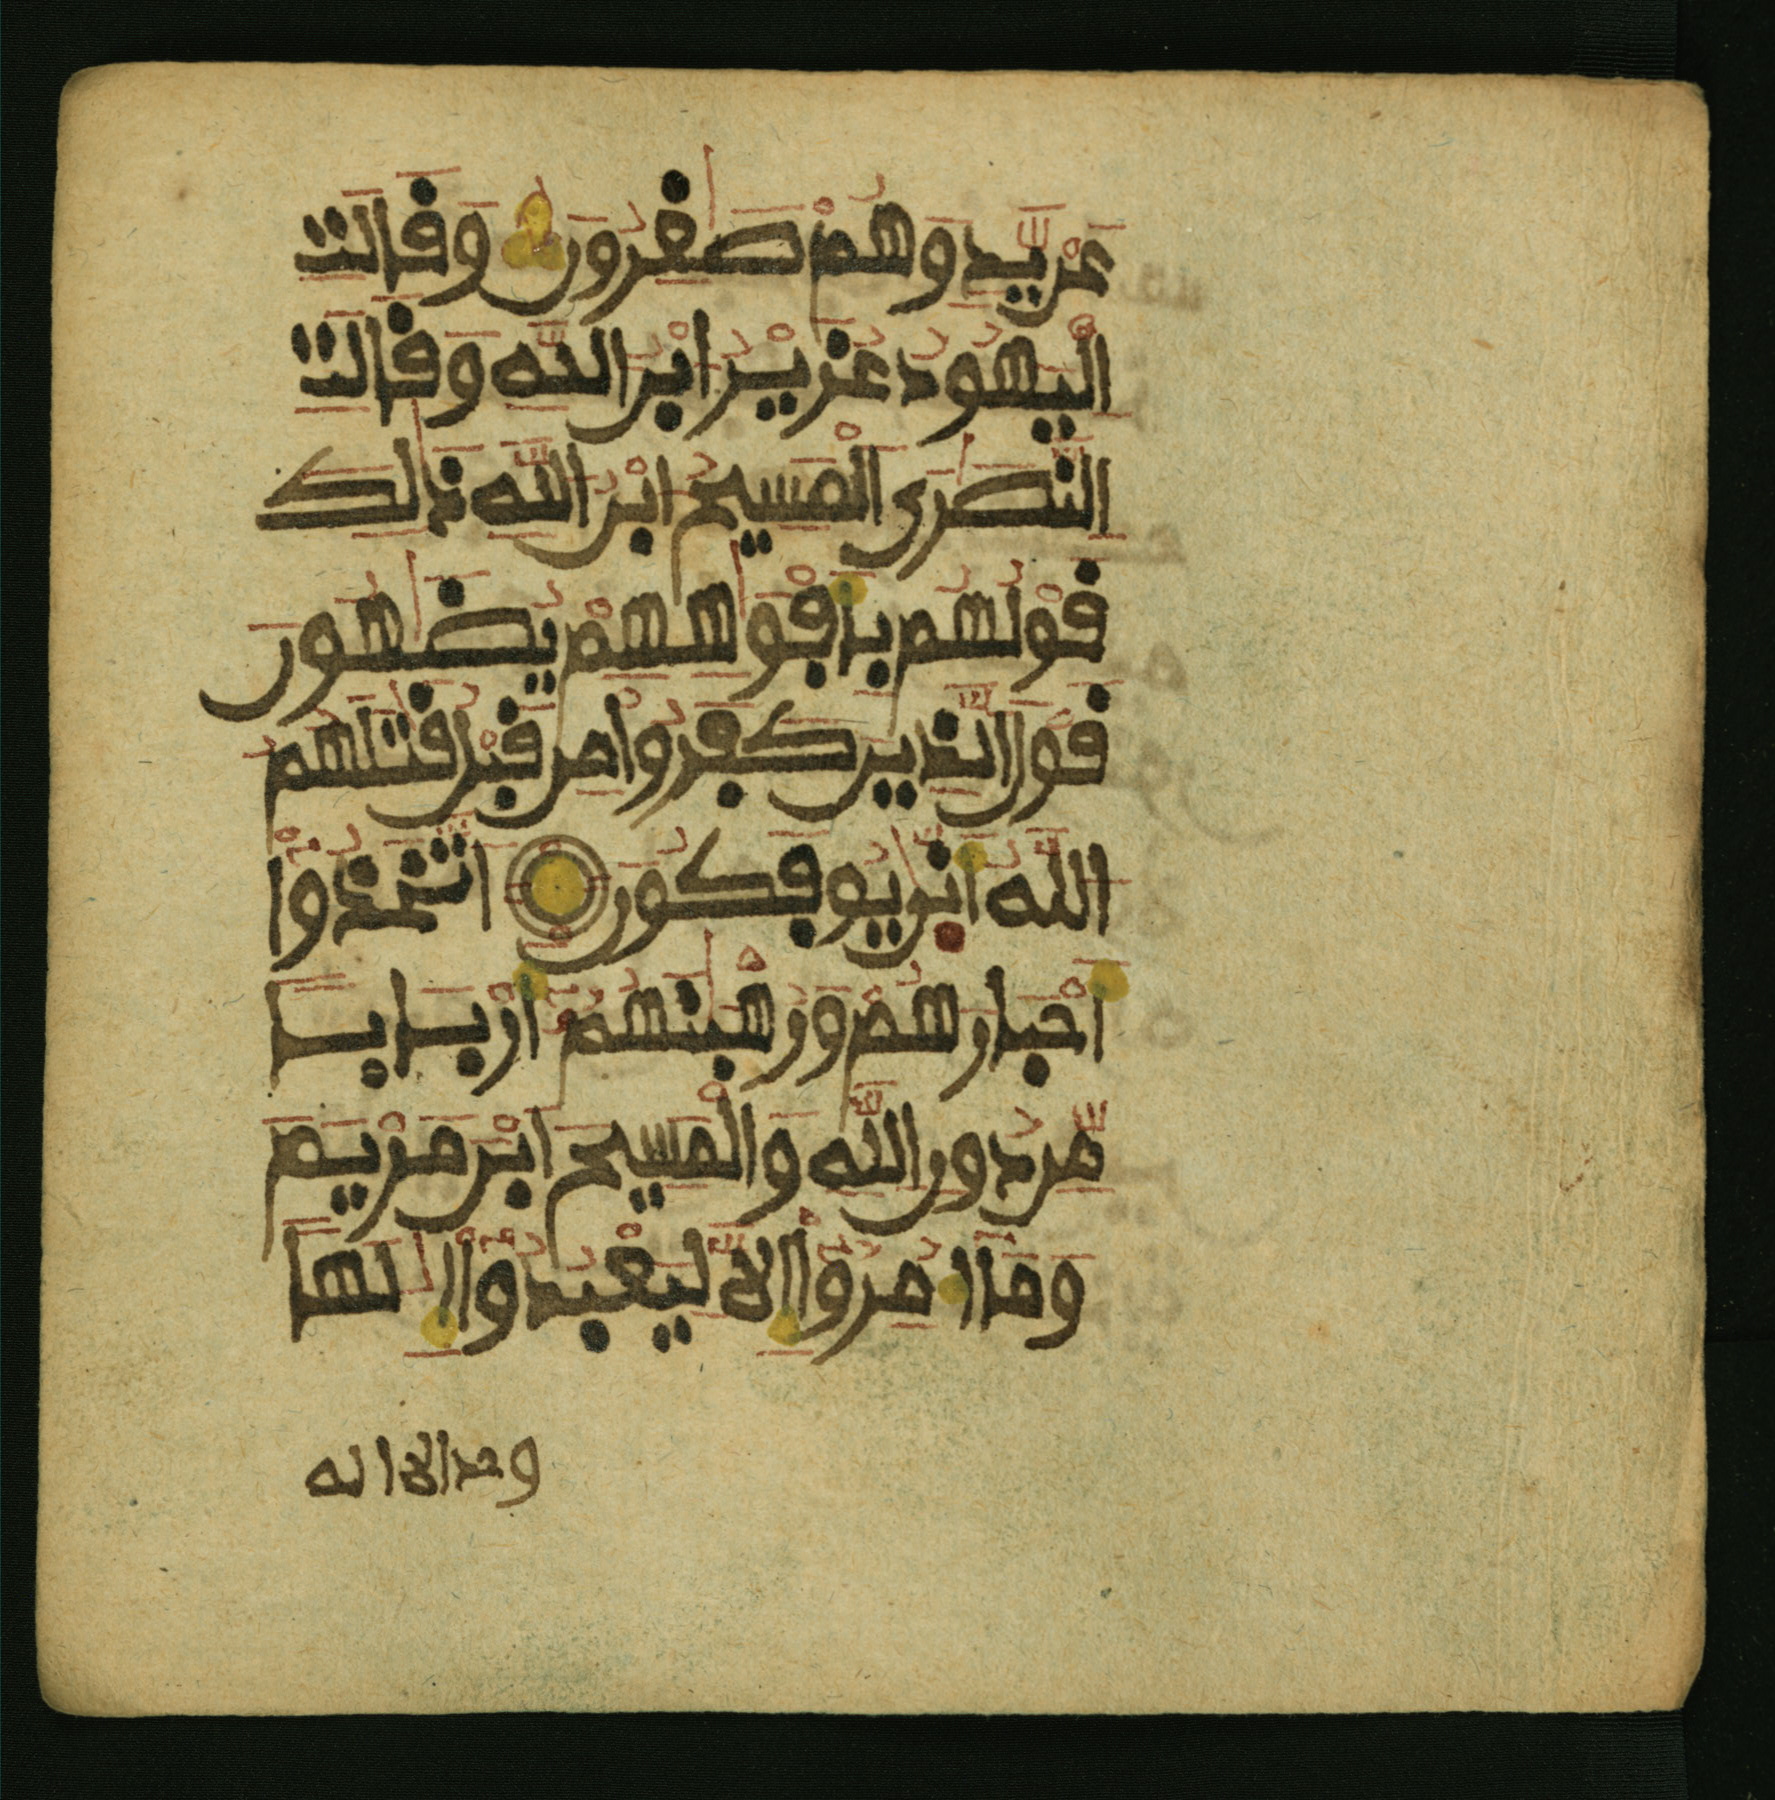 عَنْ يَّدٍ وَهُمْ صَٰغِرُونَ وَقَالَتِ
الْيَهُودُ عُزَيْرُ ابْنُ اللَّهِ وَقَالَتِ
النَّصَٰرَى الْمَسِيحُ ابْنُ اللَّهِ ذَٰلِكَ
قَوْلُهُم بِأَفْوَٰهِهِمْ يُضَٰهُونَ
قَوْلَ الَّذِينَ كَفَرُوا مِن قَبْلُ قَٰتَلَهُمُ
اللَّهُ أَنَّىٰ يُوفَكُونَ اتَّخَذُوا
أَحْبَارَهُمْ وَرُهْبَٰنَهُمُ أَرْبَابًا
مِّن دُونِ اللَّهِ وَالْمَسِيحَ ابْنَ مَرْيَمَ
وَمَا أُمِرُوا إِلَّا لِيَعْبُدُوا إِلَٰهًا
وحدا لا اله